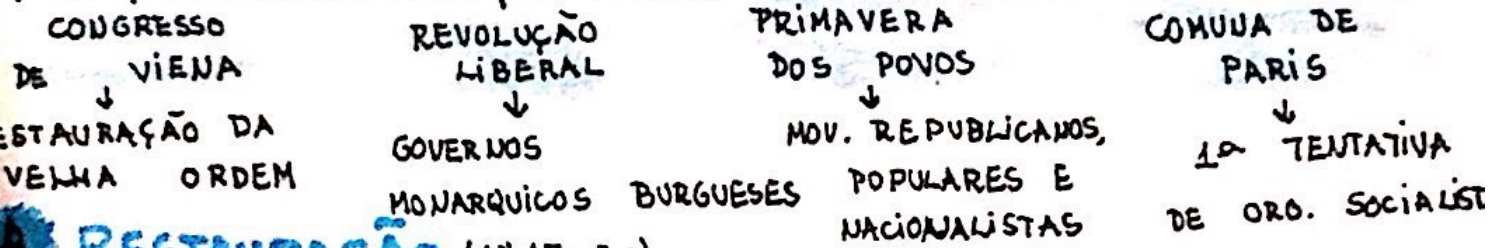 CONGRESSO
DE VIENA
↓
ESTAURAÇÃO DA
VELHA ORDEM
REVOLUÇÃO
LIBERAL
↓
GOVERNOS
MONARQUICOS BURGUESES
PRIMAVERA
DOS POVOS
↓
MOV. REPUBLICANOS,
POPULARES E
NACIONALISTAS
COMUNA DE
PARIS
↓
1ª TENTATIVA
DE ORG. SOCIALIST
RESTAURAÇÃO